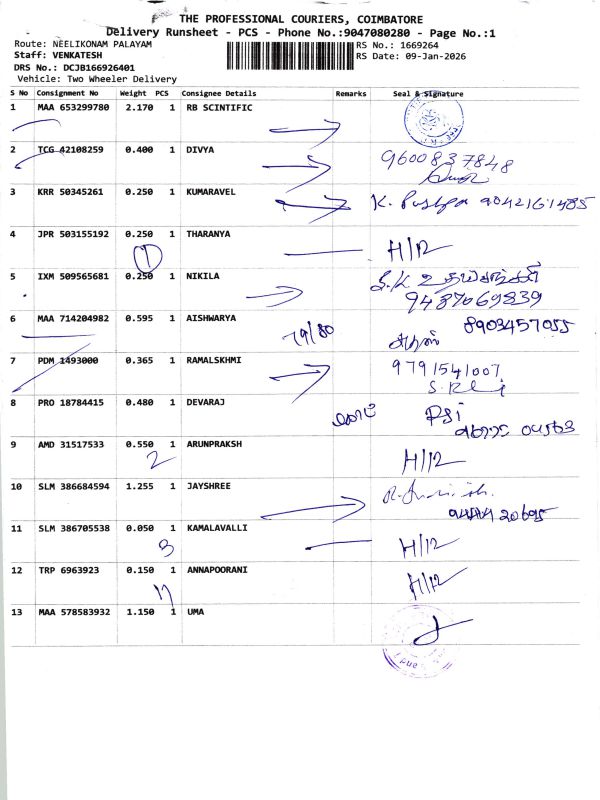 THE PROFESSIONAL COURIERS, COIMBATORE
Delivery Runsheet - PCS - Phone No.:9047080280 - Page No.:1
Route: NEELIKONAM PALAYAM
RS No.: 1669264
Staff: VENKATESH
RS Date: 09-Jan-2026
DRS No.: DCJB166926401
Vehicle: Two Wheeler Delivery
S No Consignment No Weight PCS Consignee Details Remarks Seal & Signature
1 MAA 653299780 2.170 1 RB SCINTIFIC
2 TCG 42108259 0.400 1 DIVYA 9600837848
3 KRR 50345261 0.250 1 KUMARAVEL K. Pushpa 9042161485
4 JPR 503155192 0.250 1 THARANYA H/12
1
5 IXM 509565681 0.250 1 NIKILA
9487069839
6 MAA 714204982 0.595 1 AISHWARYA 79/80 8903457055
7 PDM 1493000 0.365 1 RAMALSKHMI 9791541007
8 PRO 18784415 0.480 1 DEVARAJ
9 AMD 31517533 0.550 1 ARUNPRAKSH H/12
2
10 SLM 386684594 1.255 1 JAYSHREE
11 SLM 386705538 0.050 1 KAMALAVALLI H/12
3
12 TRP 6963923 0.150 1 ANNAPOORANI H/12
13 MAA 578583932 1.150 1 UMA